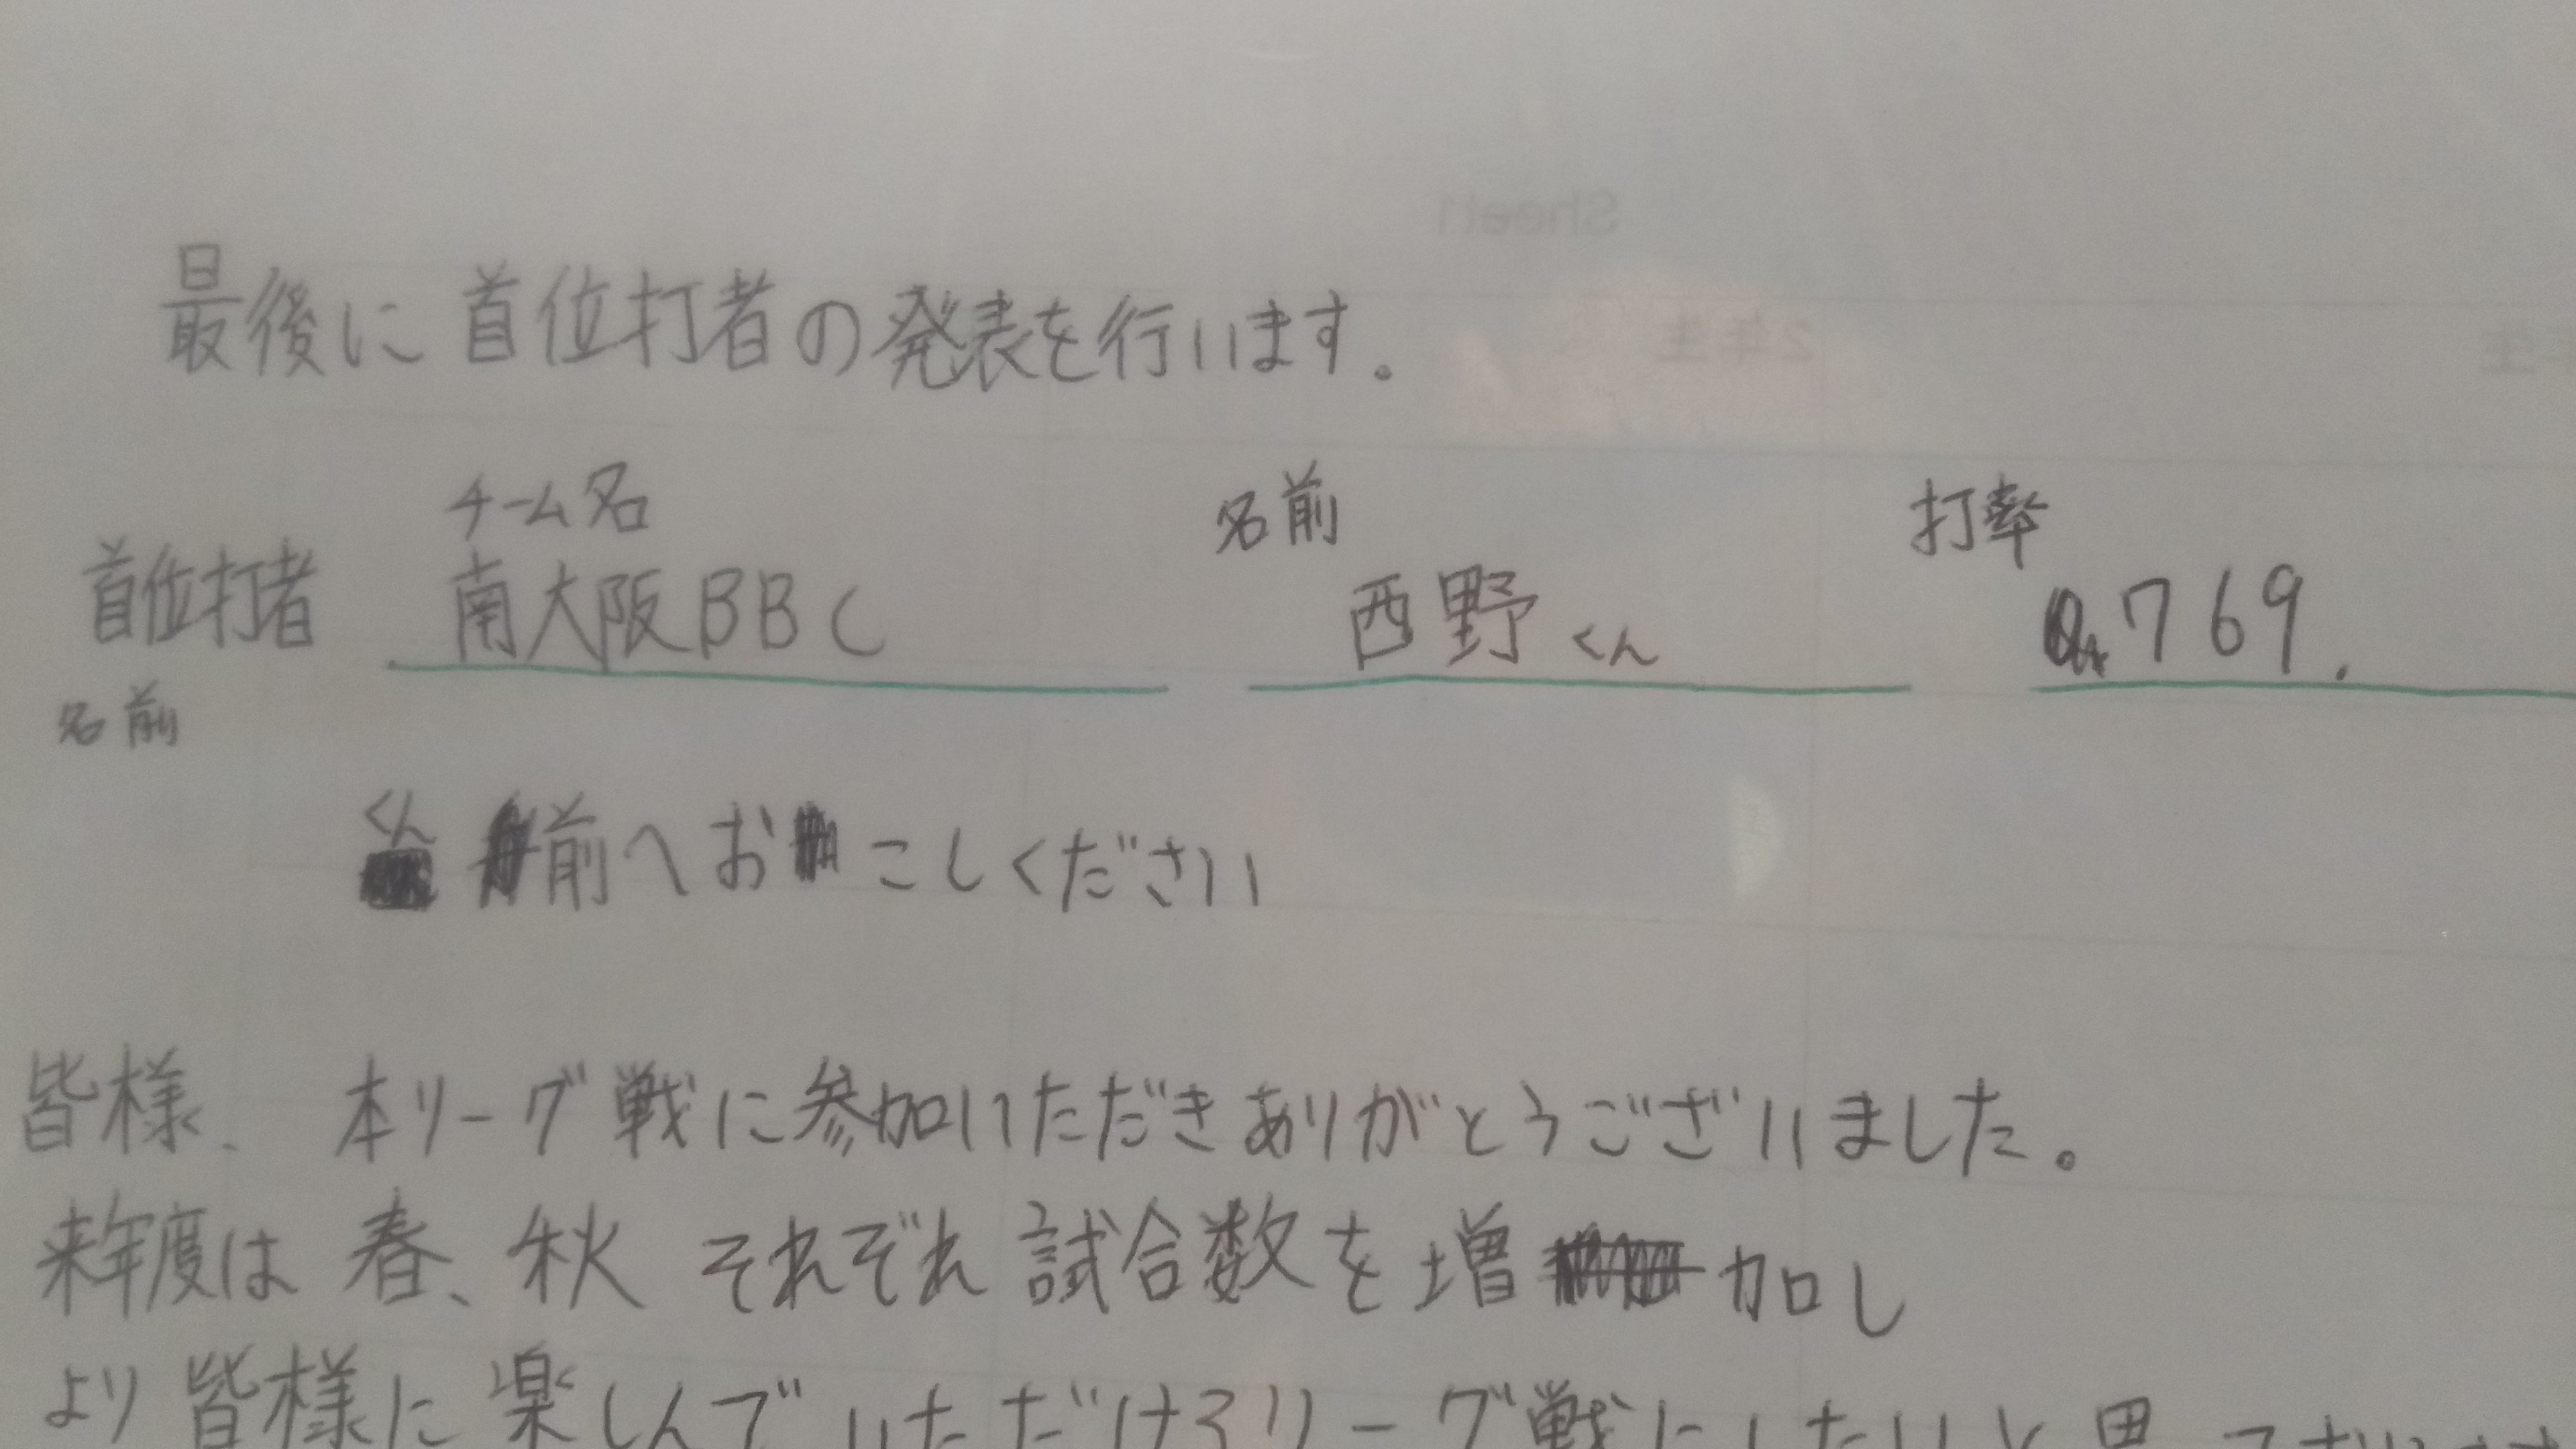 Sheet1
2年生
年生
最後に 首位打者の発表を行います。
チーム名 名前 打率
首位打者 南大阪BBC 西野くん 769.
名前
くん 前へおこしください
皆様、本リーグ戦に参加いただきありがとうございました。
来年度は 春、秋 それぞれ試合数を増加し
より皆様に楽しんでいただけるリーグ戦にしたいと思って